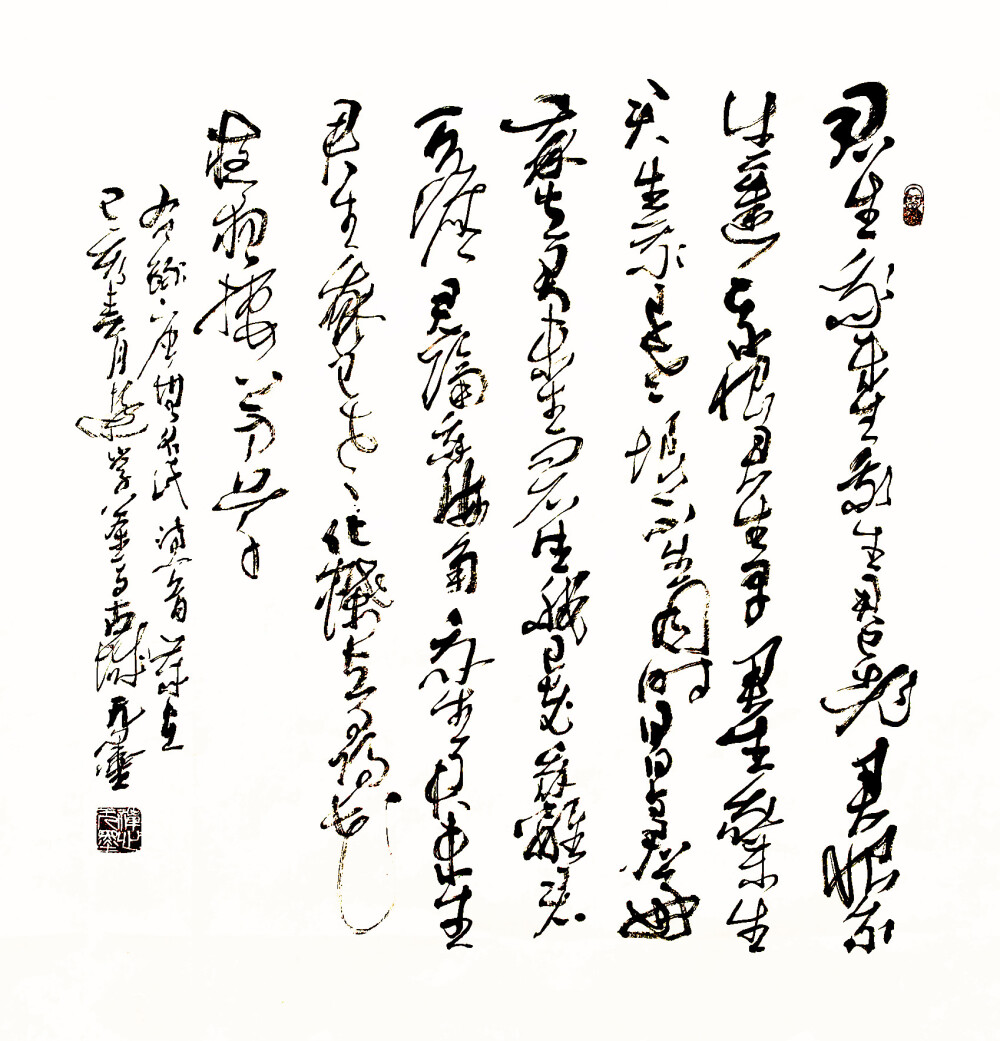 君生我未生我生君已老君恨我
生遲我恨君生早君生我未生
君生我已老恨不生同時日日與君好
我生君未生君生我已老我離君
天涯君隔我海角我生君未生
君生我已老化蝶去尋花
夜夜棲芳草
右錄唐
己亥春月